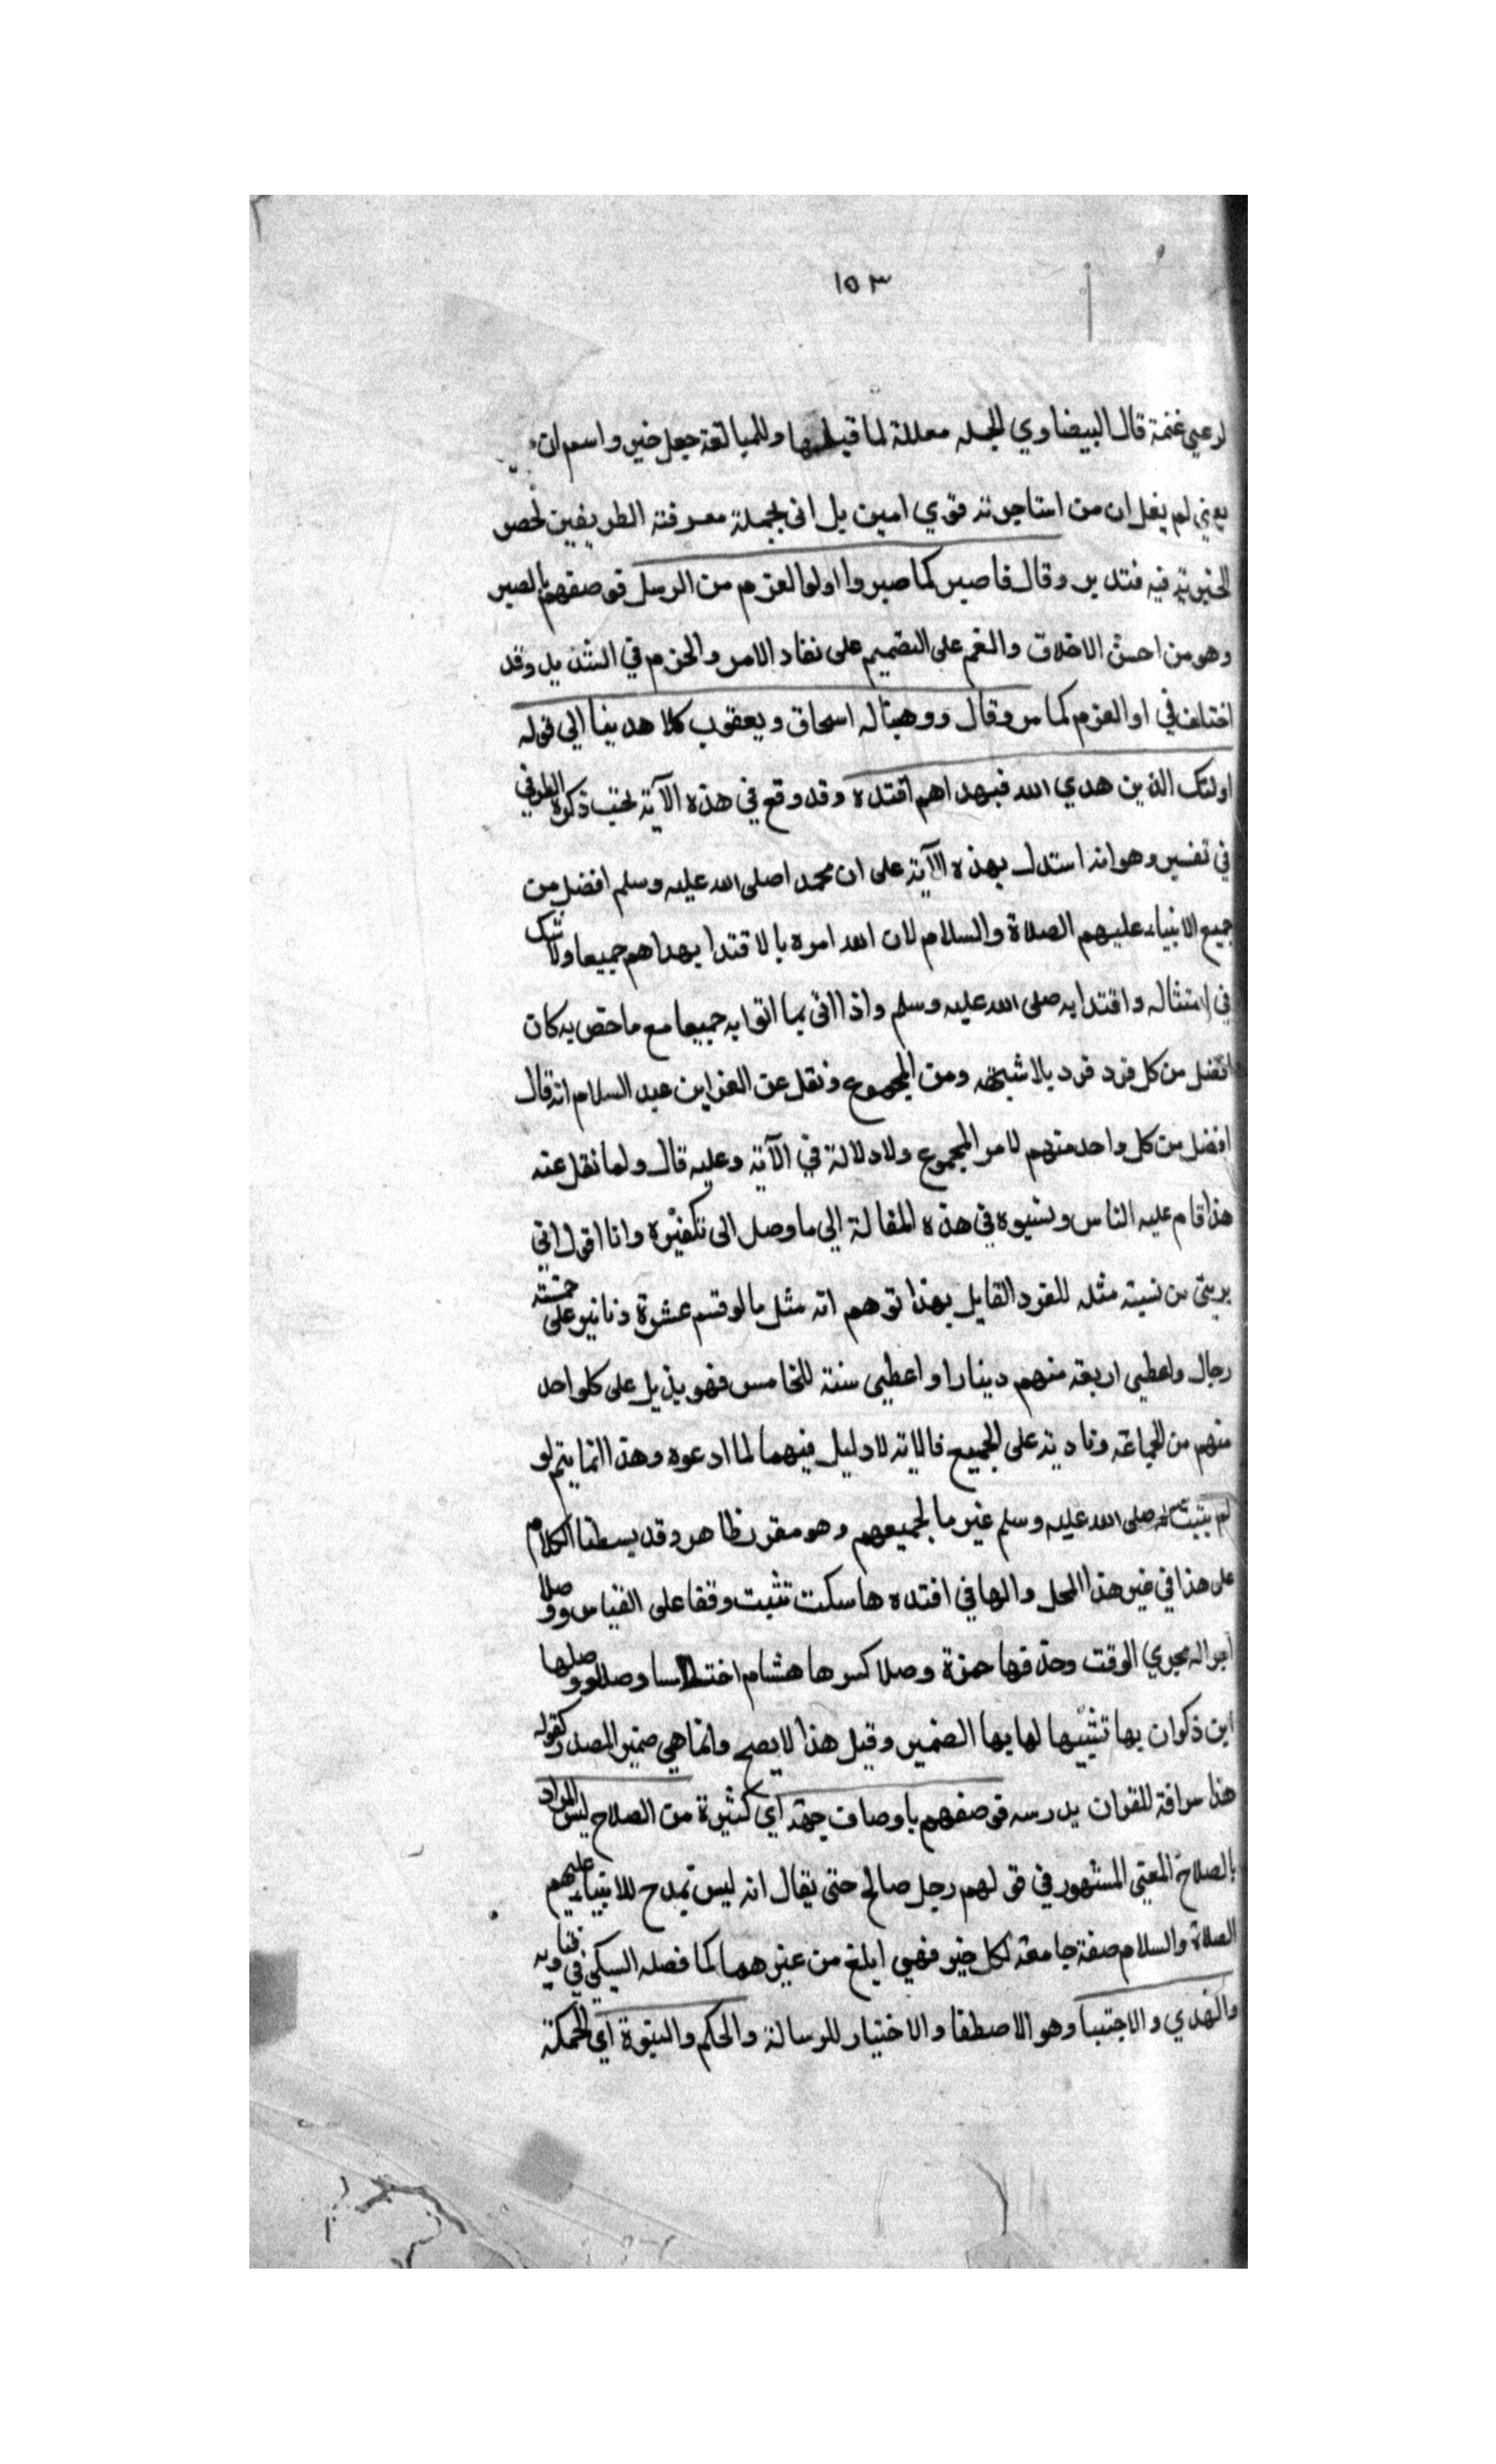 ١٥٣
لرعي غنمة قال البيضاوي الجمله معللة لما قبلها وللمبالغة جعل خير واسم ان
يعني لم يقل ان من استاجرته قوي امين بل اتى بجملة معرفته الطريفين لحصر
الخيرية فيه فتدبر وقال فاصبر كما صبروا اولوا العزم من الرسل فوصفهم بالصبر
وهو من احسن الاخلاق والعزم على التصميم على نفاد الامر والحزم في التنذيل وقد
اختلف في اوالعزم كما مر وقال ووهبناله اسحاق ويعقوب كلا هدينا الي قوله
اولئك الذين هدي الله فبهداهم اقتده وقد وقع في هذه الآية بحث ذكره الطوفي
في تفسيره وهو انه استدل بهذه الآية على ان محمدا صلى الله عليه وسلم افضل من
جميع الانبياء عليهم الصلاة والسلام لان الله امره بالاقتدا بهداهم جميعا ولا شك
في امتثاله واقتدايه صلى الله عليه وسلم واذا اتى بما اتوا به جميعا مع ما خص به كان
افضل من كل فرد فرد بلا شبهه ومن المجموع ونقل عن العز ابن عبد السلام انه قال
افضل من كل واحد منهم لامر المجموع ولا دلالة في الآية وعليه قال ولما نقل عنه
هذا قام عليه الناس ونسبوه في هذه المقالة الي ما وصل الى تكفيره وانا اقول اني
بريئ من نسبته مثله للفرد القايل بهذا توهم انه مثل ما لو قسم عشرة دنانير على خمسة
رجال واعطي اربعة منهم دينارا واعطي ستة للخامس فهو يزيد على كلواحد
منهم من الجماعة وناديه على الجميع فالاية لا دليل فيهما لما ادعوه وهذا انما يتم لو
لم يثبت له صلى الله عليه وسلم غير ما لجميعهم وهو مقرر ظاهر وقد بسطنا الكلام
على هذا في غير هذا المحل والها في اقتده ها سكت تثبت وقفا على القياس ووصلا
اجرا له مجري الوقت وحذفها حمزة وصلا كسرها هشام اختلاسا وصلا ووصلها
ابن ذكوان بها تشبيها لها بها الضمير وقيل هذا لا يصح وانما هي ضمير المصدر كقوله
هذا سراقة للقران يدرسه فوصفهم باوصاف جمة اي كثيرة من الصلاح ليس المراد
بالصلاح المعني المشهور في قولهم رجل صالح حتى يقال انه ليس بمدح للانبياء عليهم
الصلاة والسلام صفة جامعة لكل خير فهي ابلغ من غيرهما كما فصله السبكي في فتاويه
والهدي والاجتبا وهو الاصطفا والاختيار للرسالة والحكم والنبوة اي الحكمة